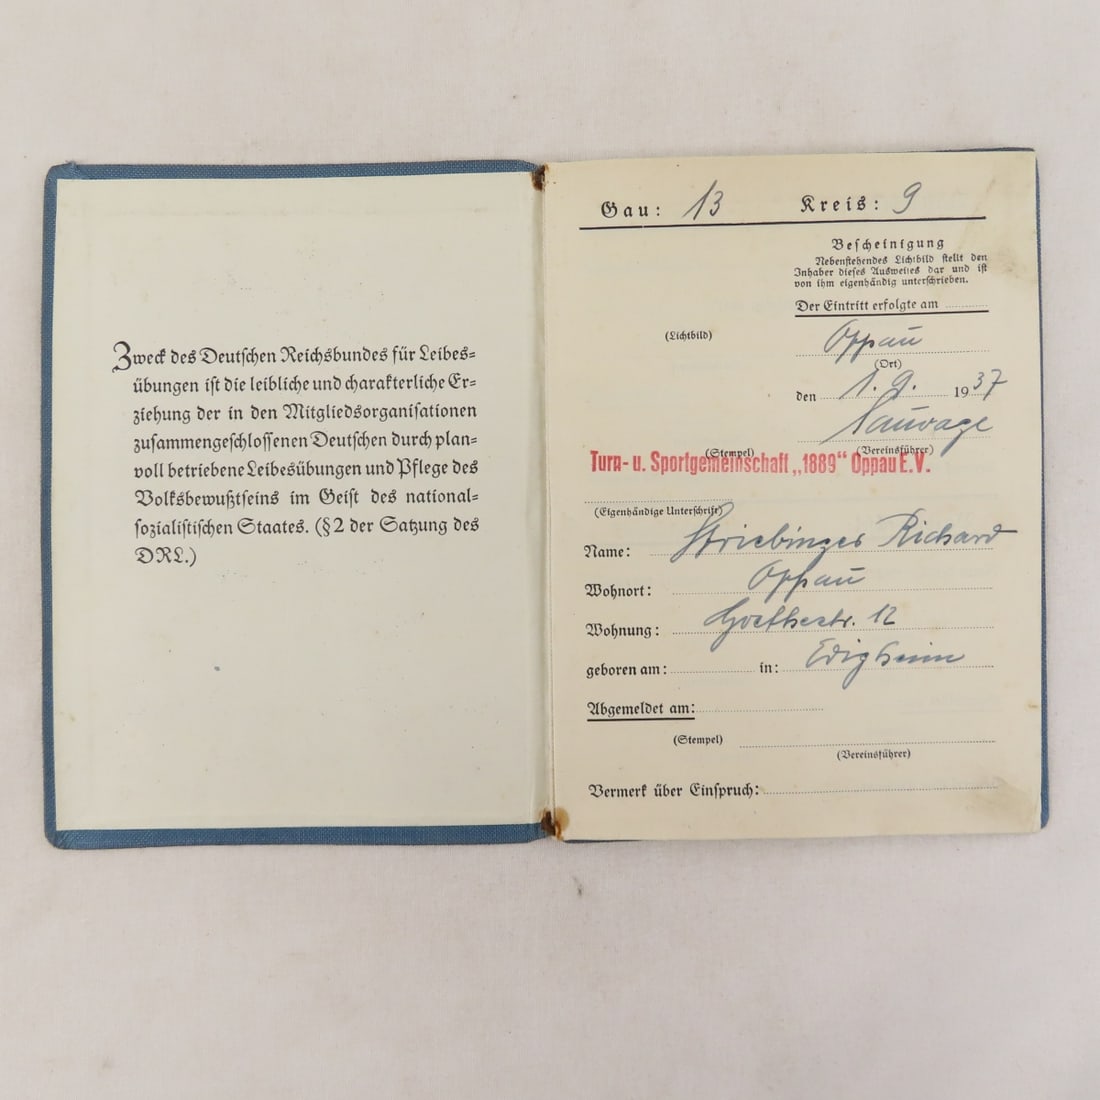 Zweck des Deutschen Reichsbundes für Leibes-
übungen ist die leibliche und charakterliche Er-
ziehung der in den Mitgliedsorganisationen
zusammengeschlossenen Deutschen durch plan-
voll betriebene Leibesübungen und Pflege des
Volksbewußtseins im Geist des national-
sozialistischen Staates. (§ 2 der Satzung des
DRL.)
Gau: 13 Kreis: 9
Bescheinigung
Nebenstehendes Lichtbild stellt den
Inhaber dieses Ausweises dar und ist
von ihm eigenhändig unterschrieben.
Der Eintritt erfolgte am
(Lichtbild)
Oppau
(Ort)
den 1. 9. 1937
Sauvage
(Stempel) (Vereinsführer)
Turn- u. Sportgemeinschaft „1889“ Oppau E.V.
(Eigenhändige Unterschrift)
Name: Striebinger Richard
Wohnort: Oppau
Wohnung: Goethestr. 12
geboren am: in: Edigheim
Abgemeldet am:
(Stempel)
(Vereinsführer)
Vermerk über Einspruch: